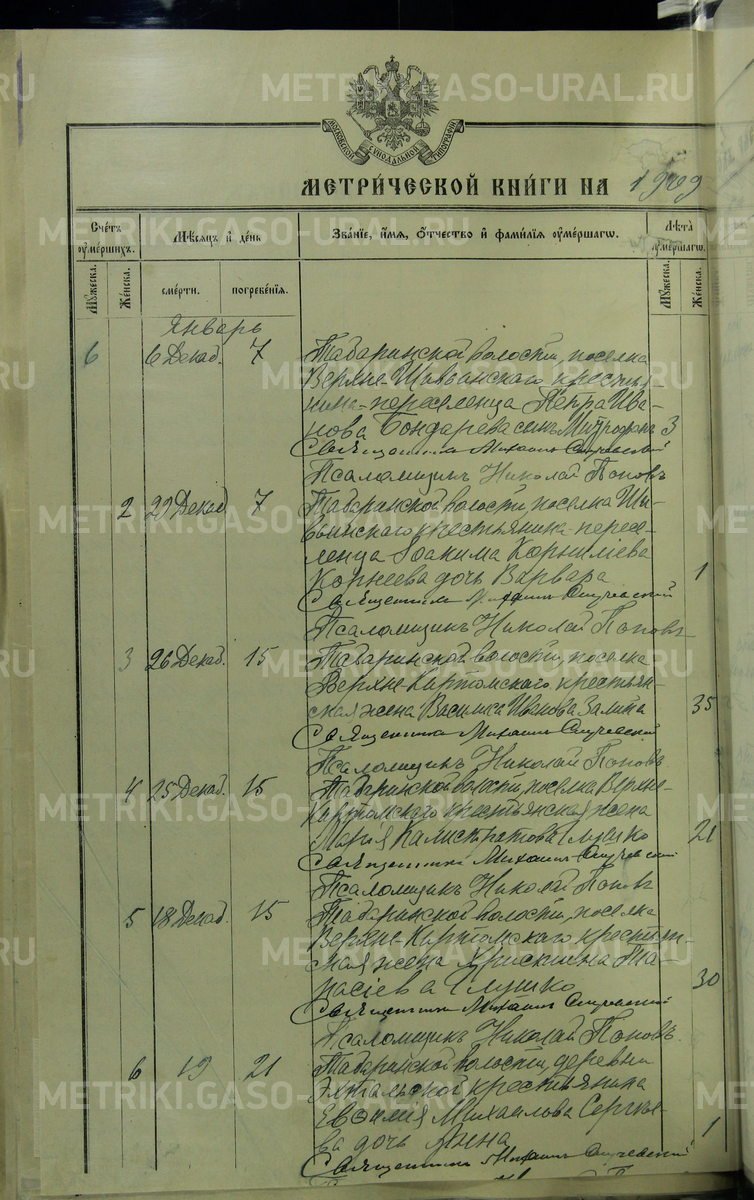 METRIKI.GASO-URAL.RU METRIKI.GASO-URAL.RU
МОСКОВСКОЙ СѴНОДАЛЬНОЙ ТИПОГРАФІИ
МЕТРИЧЕСКОЙ КНИГИ НА 1909
Счетъ умершихъ. Мѣсяцъ и день Званіе, имя, отчество и фамилія умершагѡ. Лѣта умершагѡ.
Мужеска. Женска. смерти. погребенія. Мужеска. Женска.
Январь
6 6 Декад. 7 Табаринской волости, поселка
Верхне- крестья-
нина-переселенца Петра Ива-
нова Бондарева сынъ Митрофанъ 3
Священникъ Михаилъ
Псаломщикъ Николай Поповъ
2 29 Декад. 7 Табаринской волости, поселка
крестьянина-пересе-
ленца Іоакима Корниліева
Корнеева дочь Варвара 1
Священникъ Михаилъ
Псаломщикъ Николай Поповъ
3 26 Декад. 15 Табаринской волости, поселка
Верхне-Картомскаго крестьян-
ская жена Василиса Иванова 35
Священникъ Михаилъ
Псаломщикъ Николай Поповъ
4 25 Декад. 15 Табаринской волости, поселка Верхне-
Картомскаго крестьянская жена
Марія Калистратова Глушко 21
Священникъ Михаилъ
Псаломщикъ Николай Поповъ
5 18 Декад. 15 Табаринской волости, поселка
Верхне-Картомскаго крестьян-
ская жена Христина Та-
расіева Глушко 30
Священникъ Михаилъ
Псаломщикъ Николай Поповъ
6 19 21 Табаринской волости, деревни
крестьянина
Евѳимія Михаилова Сергѣе-
ва дочь Анна 1
Священникъ Михаилъ